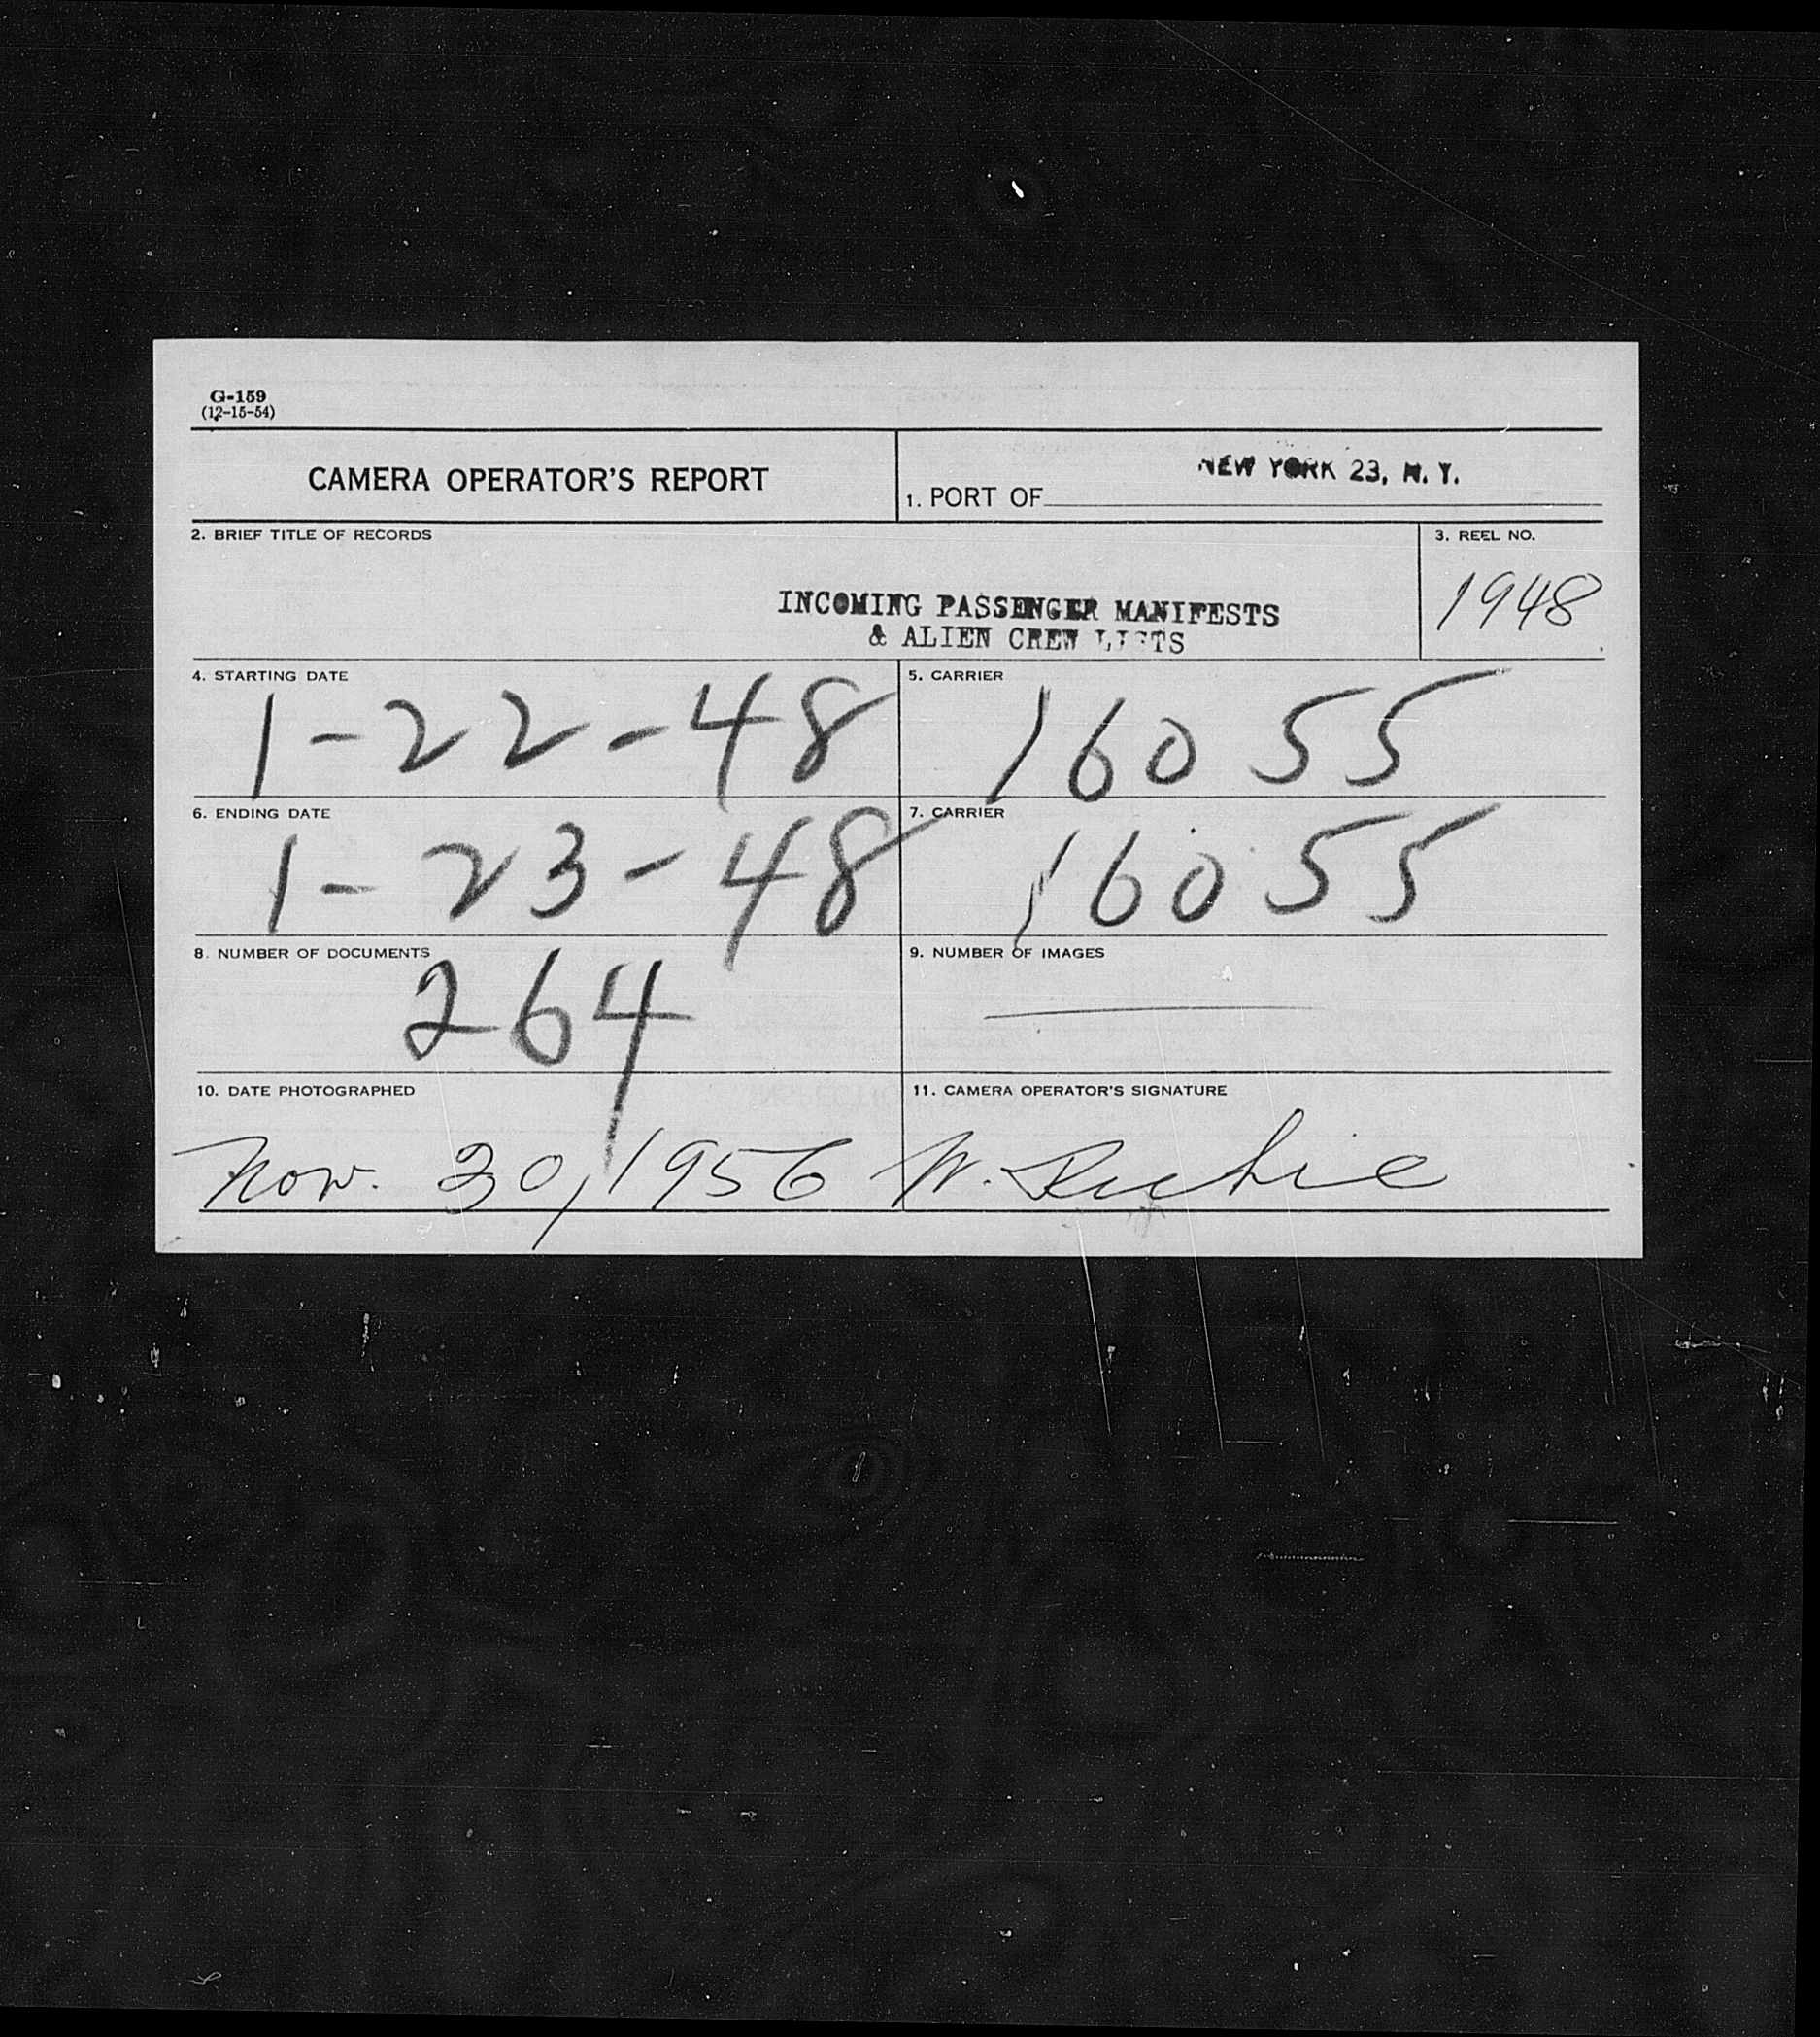 G-159
(12-15-54)
CAMERA OPERATOR'S REPORT
1. PORT OF NEW YORK 23, N. Y.
2. BRIEF TITLE OF RECORDS
INCOMING PASSENGER MANIFESTS
& ALIEN CREW LISTS
3. REEL NO.
1948
4. STARTING DATE
1-22-48
5. CARRIER
16055
6. ENDING DATE
1-23-48
7. CARRIER
16055
8. NUMBER OF DOCUMENTS
264
9. NUMBER OF IMAGES
10. DATE PHOTOGRAPHED
Nov. 30, 1956
11. CAMERA OPERATOR'S SIGNATURE
W. Ruchie